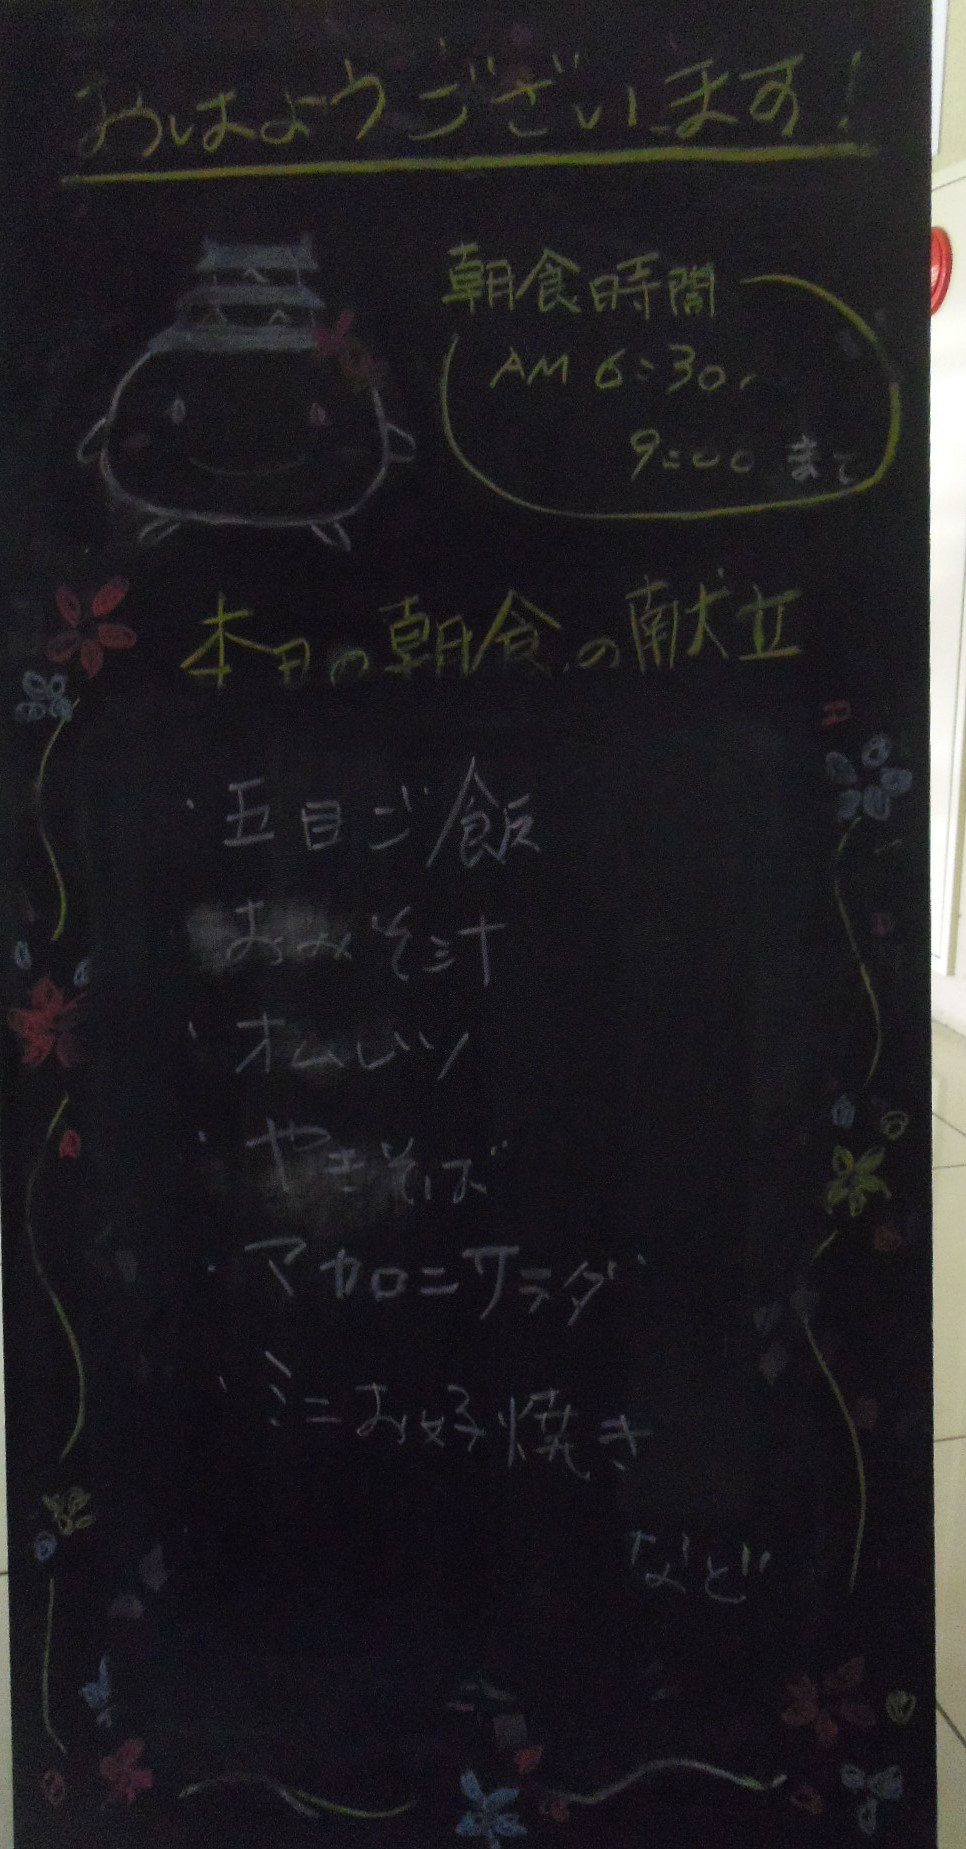 おはようございます!
朝食時間
AM 6:30〜
9:00 まで
本日の朝食の献立
・五目ご飯
おみそ汁
・オムレツ
・やきそば
・マカロニサラダ
・ミニお好焼き
など